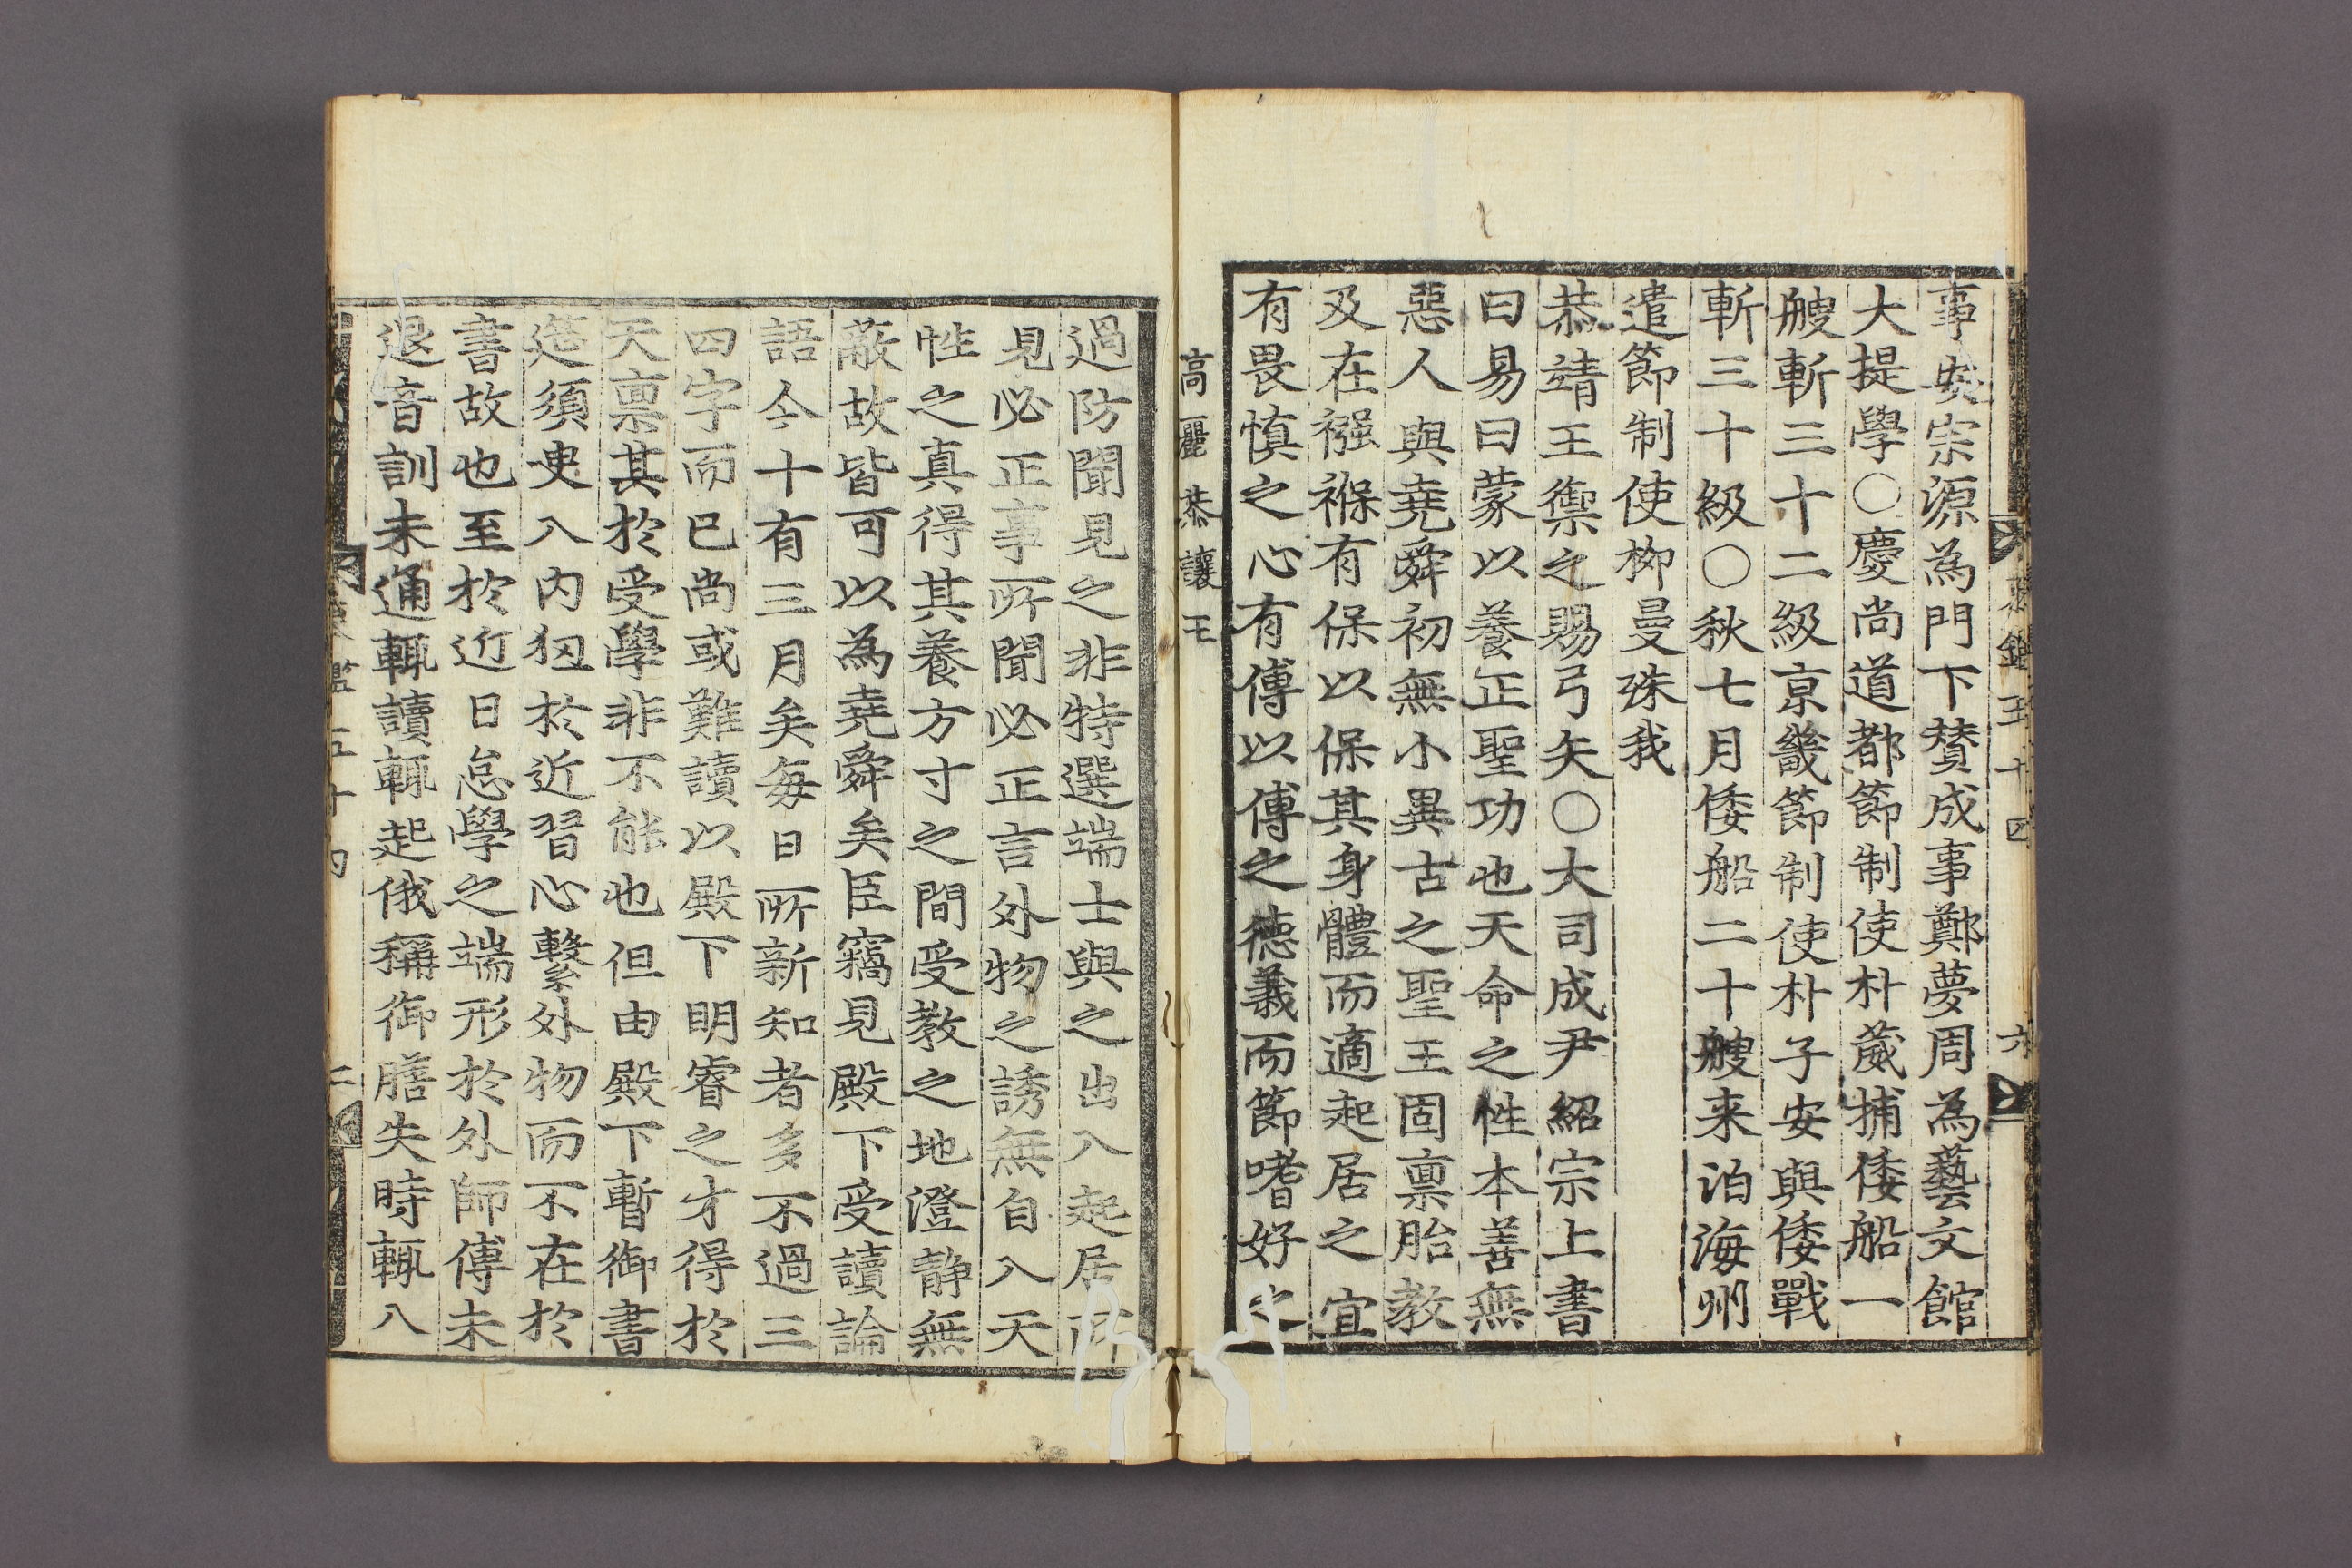 事安宗源為門下賛成事鄭夢周為藝文館
大提學○慶尚道都節制使朴葳捕倭船一
艘斬三十二級京畿節制使朴子安與倭戰
斬三十級○秋七月倭船二十艘来泊海州
遣節制使柳曼殊我
恭靖王禦之賜弓矢○大司成尹紹宗上書
曰易曰蒙以養正聖功也天命之性本善無
惡人與堯舜初無小異古之聖王固禀胎教
及在襁褓有保以保其身體而適起居之宜
有畏慎之心有傅以傅之德義而節嗜好之
高麗 恭讓王
過防聞見之非特選端士與之出入起居所
見必正事所聞必正言外物之誘無自入天
性之真得其養方寸之間受教之地澄静無
蔽故皆可以為堯舜矣臣竊見殿下受讀論
語今十有三月矣每日所新知者多不過三
四字而已尚或難讀以殿下明睿之才得於
天禀其於受學非不能也但由殿下暫御書
筵須臾入内狃於近習心繫外物而不在於
書故也至於近日怠學之端形於外師傅未
退音訓未通輒讀輒起俄稱御膳失時輒入
鑑五十四 六